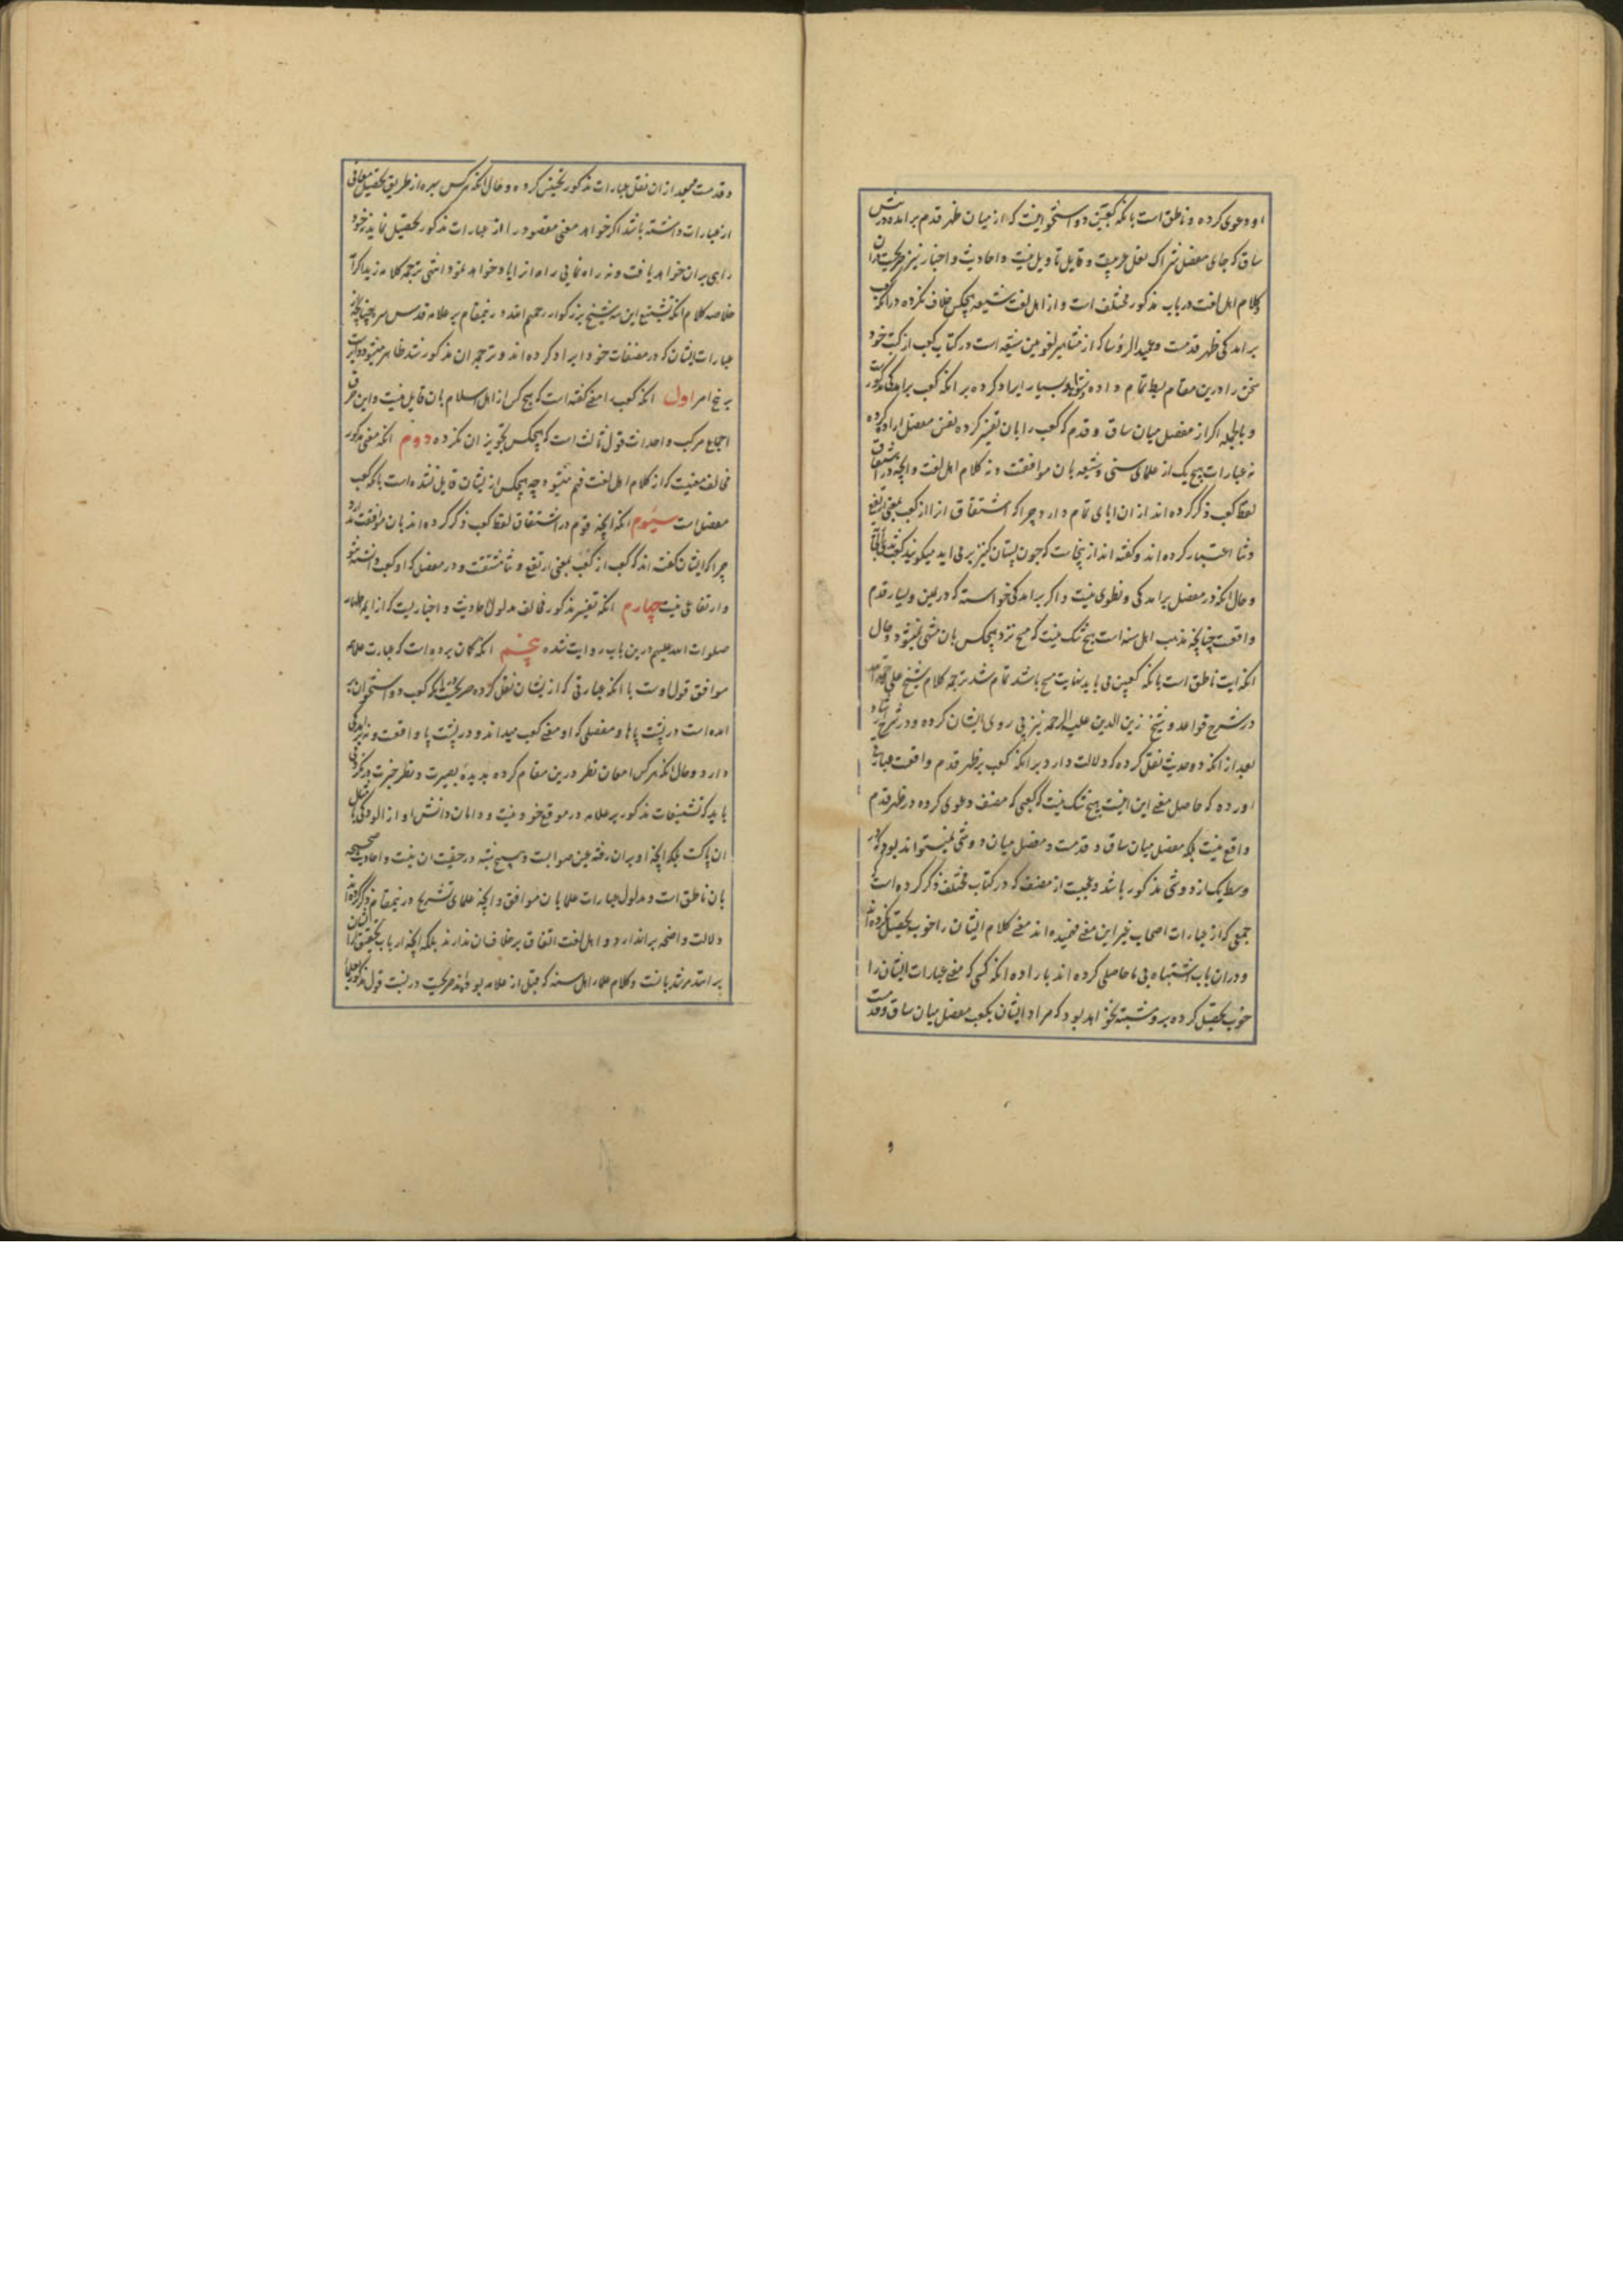 او دعوی کرده و ناطق است بانکه کعبین دو استخوانیست که از میان ظهر قدم برامده در پیش
ساق که جای مفصل شراک نعل عربیست و قابل تاویل نیست و احادیث و اخبار نیز صریحست دران
و کلام اهل لغت در باب مذکور مختلف است و از اهل لغت شیعه هیچکس خلاف نکرده درانکه کعب
برامدکی ظهر قدمست و عمید الرؤسا که از مشاهیر لغویین شیعه است در کتاب کعب از کتب خود
سخن را درین مقام بسط تمام داده و شواهد بسیار ایراد کرده بر انکه کعب برامدکی مذکور است
و بالجمله اکر از مفصل میان ساق و قدم که کعب را بان تفسیر کرده نفس مفصل اراده کرده
نه عبارات هیچ یک از علمای سنی و شیعه بان موافقست و نه کلام اهل لغت و انچه در اشتقاق
لفظ کعب ذکر کرده اند از ان ابای تمام دارد چرا که اشتقاق انرا از کعب بمعنی ارتفع
ونتا اعتبار کرده اند و کفته اند از ینجاست که چون پستان کنیز برمی اید میکویند کعب ثدیها
و حال انکه در مفصل برامدکی و نطوی نیست و اکر برامدکی خواسته که در یمین و یسار قدم
واقعست چنانچه مذهب اهل سنه است هیچ شک نیست که مسح نزد هیچکس بان منتهی نمیشود و حال
انکه ایت ناطق است بانکه کعبین می باید نهایت مسح باشد تمام شد ترجمه کلام شیخ علی رحمه الله
در شرح قواعد و شیخ زین الدین علیه الرحمه نیز پی روی ایشان کرده و در شرح ارشاد
بعد از انکه دو حدیث نقل کرده که دلالت دارد بر انکه کعب بر ظهر قدم واقعست عبارتی
اورده که حاصل معنی این اینست هیچ شک نیست که کعبی که مصنف دعوی کرده در ظهر قدم
واقع نیست بلکه مفصل میان ساق و قدمست و مفصل میان دو شی نمیتواند بود که در
وسط یک از دو شی مذکور باشد و عجبست از مصنف که در کتاب مختلف ذکر کرده است که
جمعی که از عبارات اصحاب غیر این معنی فهمیده اند معنی کلام ایشان را خوب تحقیق نکرده اند
و دران باب اشتباه بی ماحاصلی کرده اند باراده انکه کسی که معنی عبارات ایشان را
خوب تحقیق کرده برو مشتبه نخواهد بود که مراد ایشان بکعب مفصل میان ساق و قدمست
و
و قدمست و بعد از ان نقل عبارات مذکور تخیین کرده و حال انکه هر کس بهره از طریق تحقیق معانی
از عبارات داشته باشد اکر خواهد معنی مقصود را از عبارات مذکور تحصیل نماید نه خود
راهی بران خواهد یافت و نه راه نمایی راه انرا باو خواهد نمود انتهی ترجمه کلامه زید اکرامه
خلاصه کلام انکه تشنیع این سه شیخ بزرکوار رحمهم الله در ینمقام بر علامه قدس سره چنانچه از
عبارات ایشان که در مصنفات خود ایراد کرده اند و ترجمه ان مذکور شد ظاهر میشود دایرست
بر پنج امر اول انکه کعب را معنی کفته است که هیچ کس از اهل اسلام بان قایل نیست و این خرق
اجماع مرکب و احداث قول ثالث است که هیچکس تجویز ان نکرده دوم انکه معنی مذکور
مخالف معنیست که از کلام اهل لغت فهم میشود چه هیچکس از یشان قایل نشده است بانکه کعب
مفصل است سیوم انکه انچه قوم در اشتقاق لفظ کعب ذکر کرده اند بان موافقت ندارد
چرا که ایشان کفته اند که کعب از کعب بمعنی ارتفع و نتا مشتقست و در مفصل که او کعب دانسته نتو
و ارتفاعی نیست چهارم انکه تفسیر مذکور مخالف مدلول احادیث و اخباریست که از ایمه اطهار
صلوات الله علیهم درین باب روایت شده پنجم انکه کمان برده است که عبارت علما
موافق قول اوست با انکه عبارتی که از یشان نقل کرده صریحست در انکه کعب دو استخوان بر
امده است در پشت پاها و مفصلی که او معنی کعب میداند و در پشت پا واقعست و نه برامدکی
دارد و حال انکه هر کس امعان نظر درین مقام کرده بدیده بصیرت و نظر خبرت در نکرد می
یابد که تشنیعات مذکور بر علامه در موقع خود نیست و دامان دانش او از الودکی بامثال
ان پاکست بلکه انچه او بران رفته عین صوابست و هیچ شبهه در حقیت ان نیست و احادیث صحیحه
بان ناطق است و مدلول عبارات علما بان موافق و انچه علمای تشریح در ینمقام ذکر کرده اند
دلالت واضحه بر اندارد و اهل لغت اتفاق بر خلاف ان ندارند بلکه انچه ارباب تحقیق از ایشان
بر انند مرشد بانست و کلام علماء اهل سنه که قبل از علامه بوده اند صریحست در نسبت قول مذکور بعلما